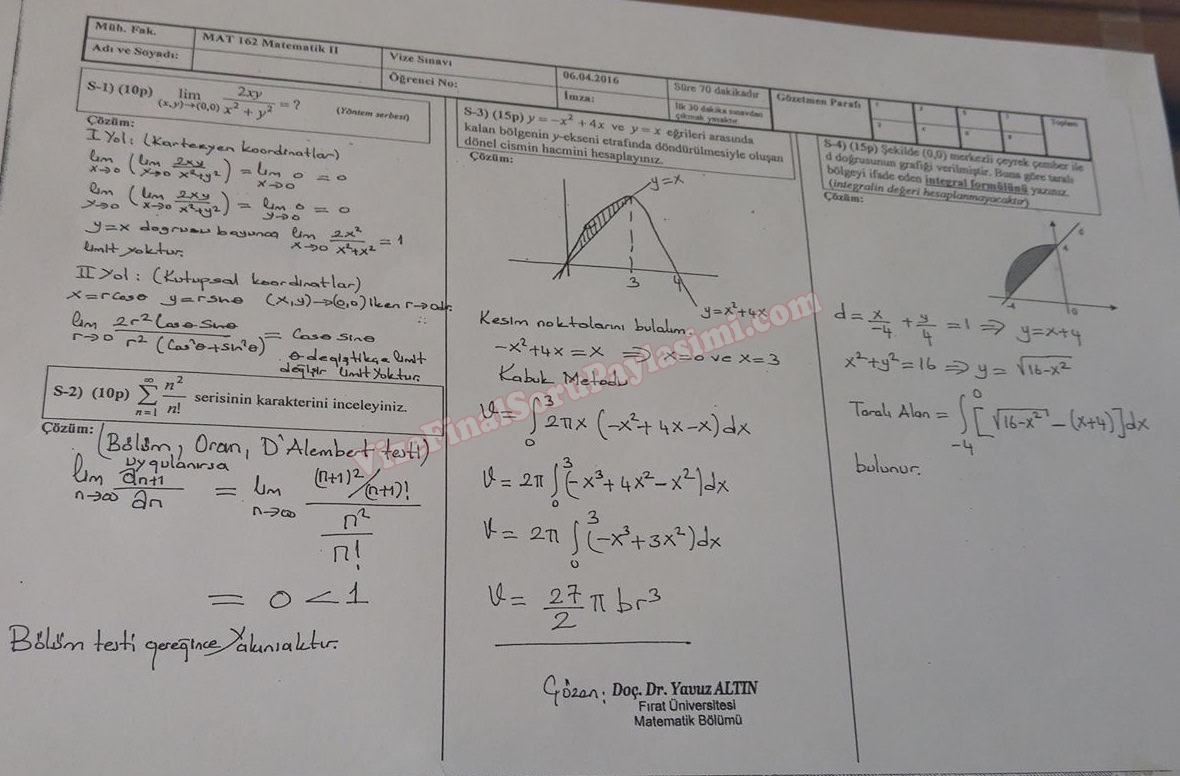 Müh. Fak.
MAT 162 Matematik II
Vize Sınavı
06.04.2016
Süre 70 dakikadır
Gözetmen Parafı
1
2
3
4
Toplam
Adı ve Soyadı:
Öğrenci No:
İmza:
İlk 30 dakika sınavdan
çıkmak yasaktır
S-1) (10p) lim (x,y)→(0,0) 2xy / x² + y² = ? (Yöntem serbest)
Çözüm:
I Yol: (Kartezyen koordinatlar)
lim x→0 (lim x→0 2xy / x²+y²) = lim x→0 0 = 0
lim y→0 (lim x→0 2xy / x²+y²) = lim y→0 0 = 0
y=x doğrusu boyunca lim x→0 2x² / x²+x² = 1
limit yoktur.
II Yol: (Kutupsal koordinatlar)
x=rcosθ y=rsinθ (x,y)→(0,0) iken r→0 dır.
lim r→0 2r² Cosθ Sinθ / r² (Cos²θ+Sin²θ) = Cosθ Sinθ
θ değiştikçe limit
değişir limit yoktur.
S-2) (10p) ∞ Σ n=1 n² / n! serisinin karakterini inceleyiniz.
Çözüm: (Bölüm, Oran, D'Alembert testi)
uygulanırsa
lim n→∞ an+1 / an = lim n→∞ (n+1)²/(n+1)! / n² / n!
= 0 < 1
Bölüm testi gereğince Yakınsaktır.
S-3) (15p) y = −x² + 4x ve y = x eğrileri arasında
kalan bölgenin y-ekseni etrafında döndürülmesiyle oluşan
dönel cismin hacmini hesaplayınız.
Çözüm:
y=x
3
4
y=x²+4x
Kesim noktalarını bulalım.
-x²+4x = x ⇒ x=0 ve x=3
Kabuk Metodu
V = ∫₀³ 2πx (-x²+4x-x)dx
V = 2π ∫₀³ (-x³+4x²-x²)dx
V = 2π ∫₀³ (-x³+3x²)dx
V = 27/2 π br³
Çözen: Doç. Dr. Yavuz ALTIN
Fırat Üniversitesi
Matematik Bölümü
S-4) (15p) Şekilde (0,0) merkezli çeyrek çember ile
d doğrusunun grafiği verilmiştir. Buna göre taralı
bölgeyi ifade eden integral formülünü yazınız.
(integralin değeri hesaplanmayacaktır)
Çözüm:
4
-4
0
d = x/-4 + y/4 = 1 ⇒ y=x+4
x²+y²=16 ⇒ y = √16-x²
Taralı Alan = ∫₋₄⁰ [√16-x² - (x+4)]dx
bulunur.
VizeFinalSoruPaylasimi.com